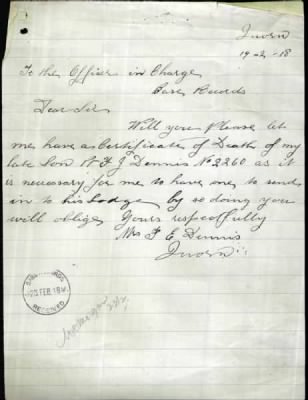 Invern
19-2-18
To the Officer in Charge
Base Records
Dear Sir
Will you Please let
me have a Certificate of Death of my
late Son W F J Dennis No 2260 as it
is necessary for me to have one to send
in to his Lodge by so doing you
will oblige Yours respectfully
Mrs F E Dennis
RECEIVED
FEB 18